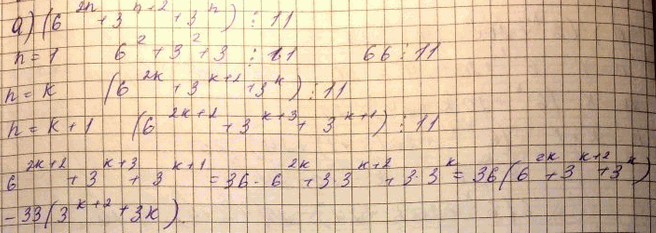 а) (6^{2n} + 3^{n+2} + 3^{n}) ⋮ 11
n = 1 6^{2} + 3^{2} + 3 ⋮ 11 66 ⋮ 11
n = k (6^{2k} + 3^{k+2} + 3^{k}) ⋮ 11
n = k + 1 (6^{2k+2} + 3^{k+3} + 3^{k+1}) ⋮ 11
6^{2k+2} + 3^{k+3} + 3^{k+1} = 36 · 6^{2k} + 3·3^{k+2} + 3·3^{k} = 36(6^{2k} + 3^{k+2} + 3^{k})
-33(3^{k+2} + 3k).